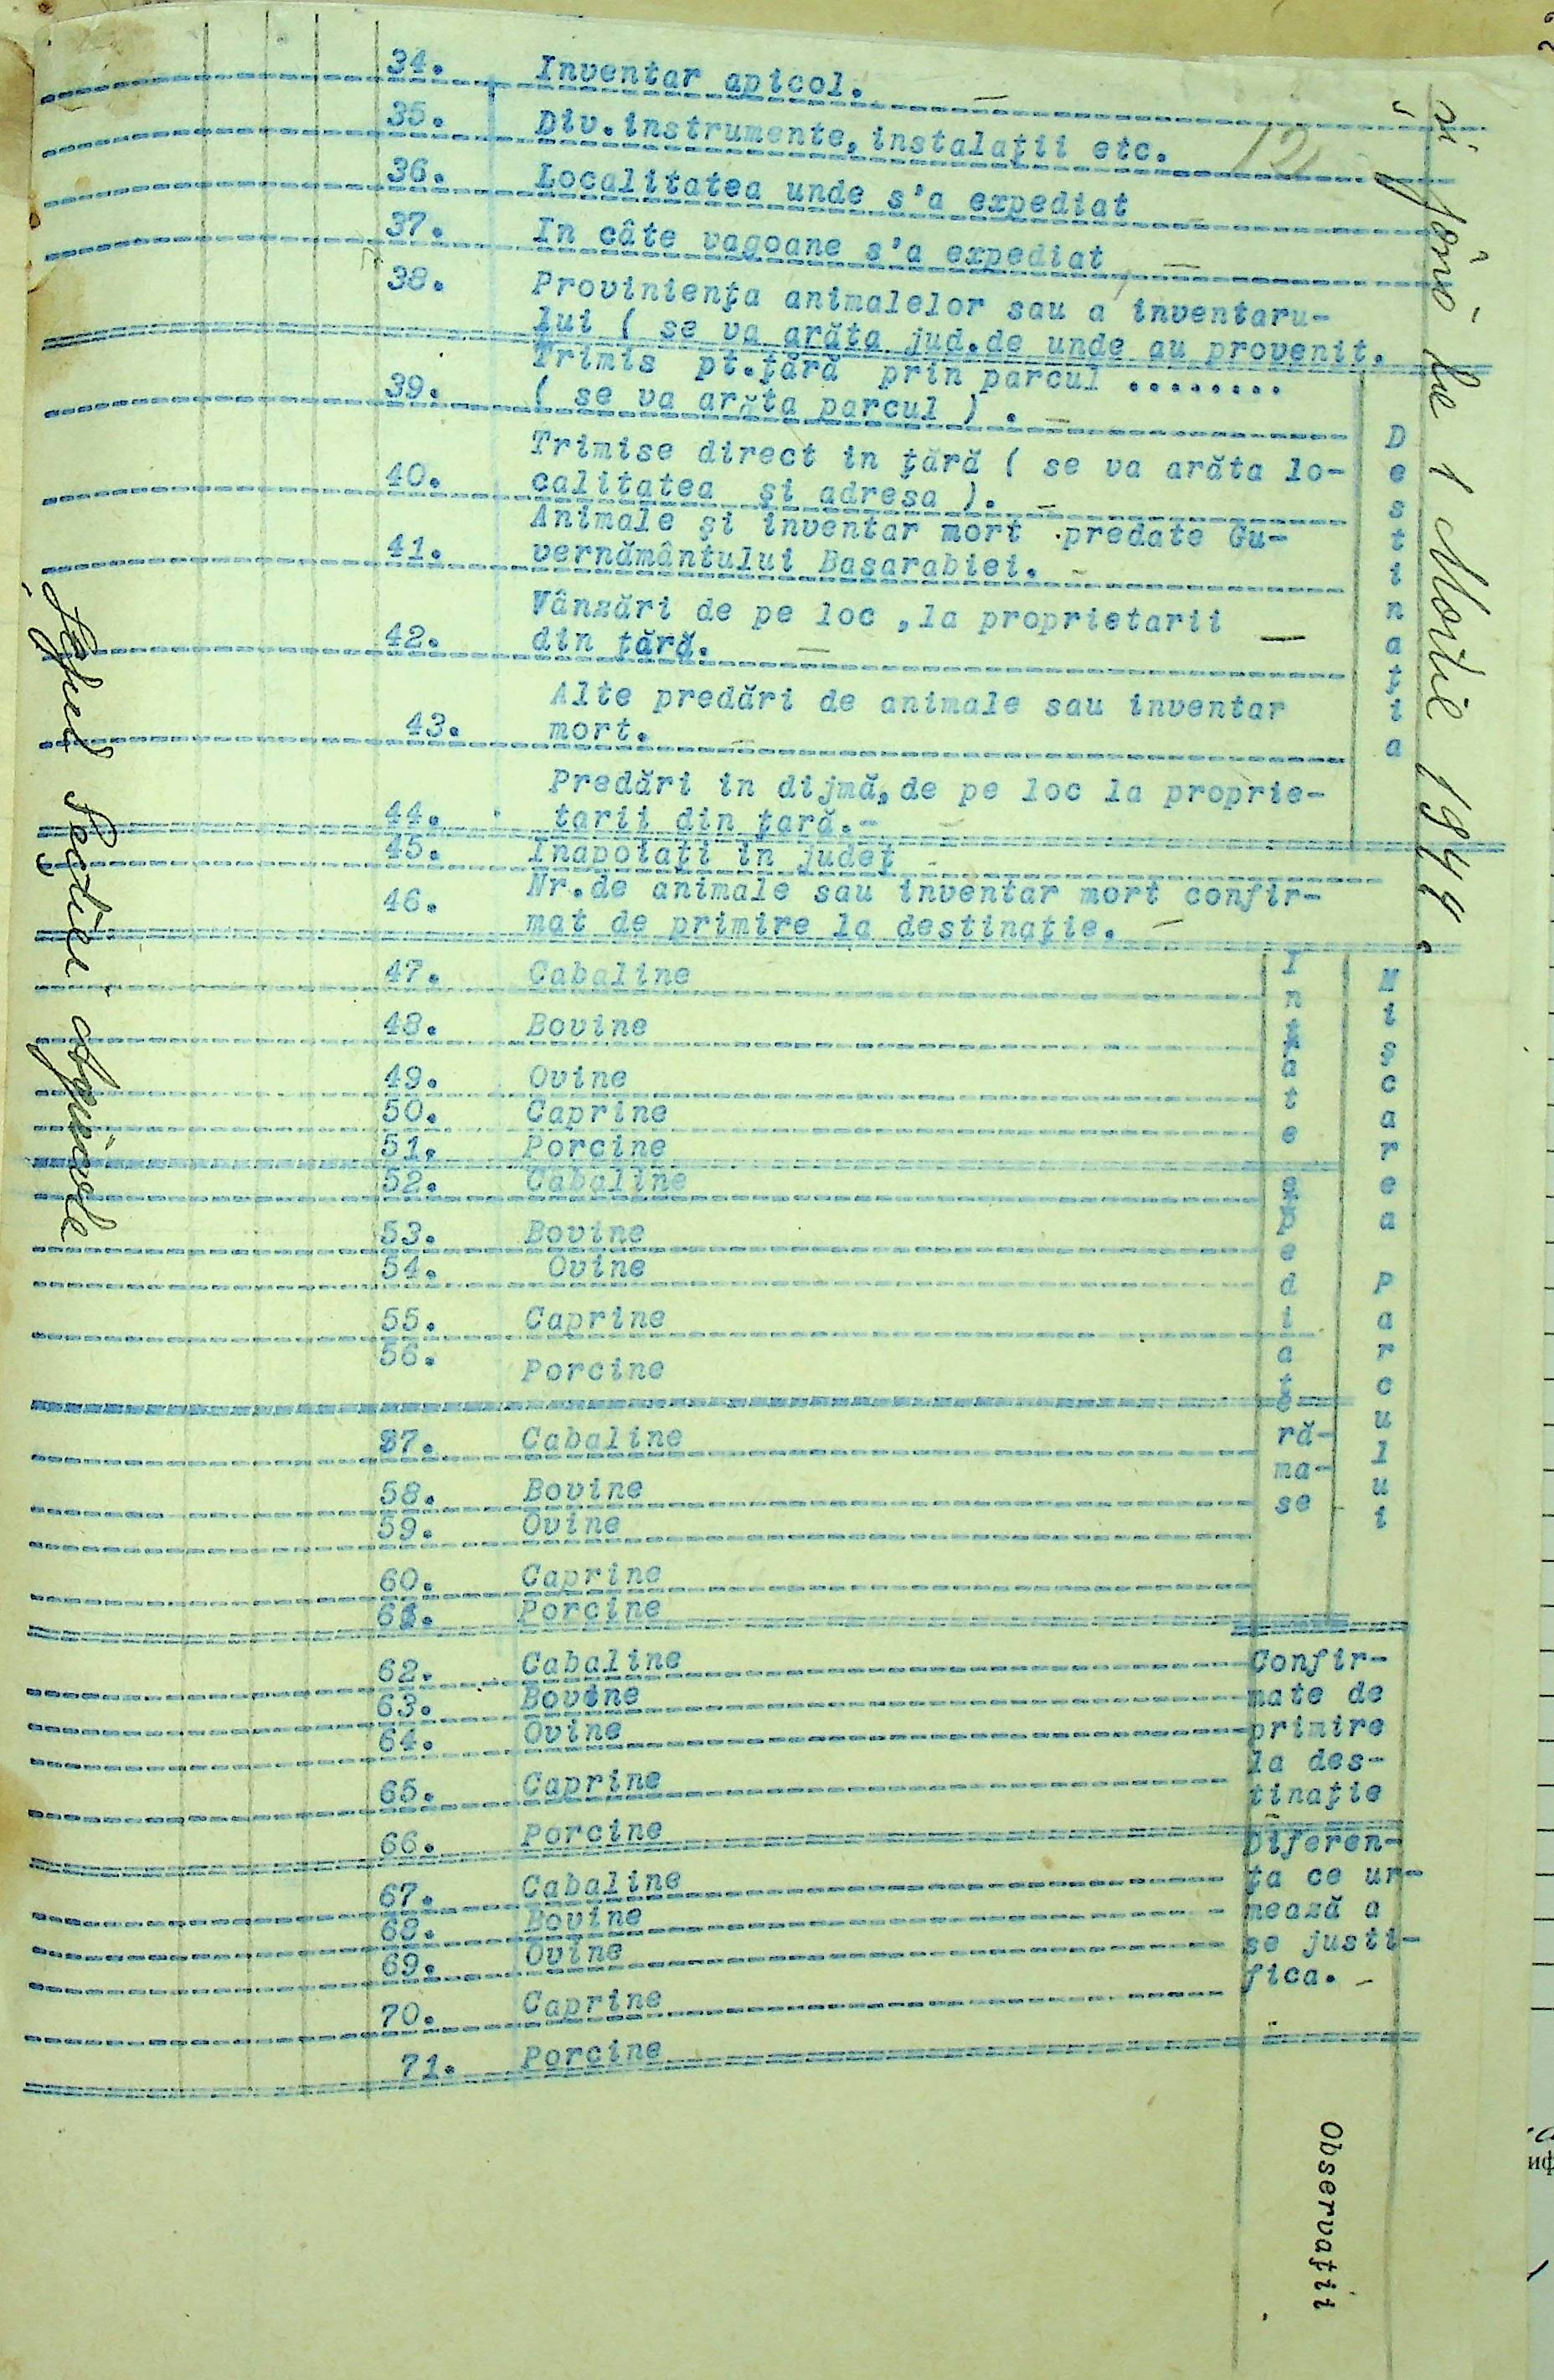 și până la 1 Martie 1944.
34. Inventar apicol. —
35. Div.instrumente,instalaţii etc. 12
36. Localitatea unde s'a expediat —
37. In câte vagoane s'a expediat —
38. Proviniența animalelor sau a inventaru-
lui ( se va arăta jud.de unde au provenit.
Trimis pt.ţără prin parcul ........
39. ( se va arăta parcul ) . —
Trimise direct in ţără ( se va arăta lo-
40. calitatea şi adresa ). —
Animale şi inventar mort predate Gu-
41. vernământului Basarabiei. —
Vânzări de pe loc ,la proprietarii —
42. din ţără. —
Alte predări de animale sau inventar
43. mort. —
Predări in dijmă,de pe loc la proprie-
44. tarii din ţară.-
Destinaţia
45. Inapoiaţi in judeţ
Nr.de animale sau inventar mort confir-
46. mat de primire la destinaţie. —
47. Cabaline
48. Bovine
49. Ovine
50. Caprine
51. Porcine
Intrate
52. Cabaline
53. Bovine
54. Ovine
55. Caprine
56. Porcine
expediate
57. Cabaline
58. Bovine
59. Ovine
60. Caprine
61. Porcine
ră-
ma-
se
Mişcarea Parcului
62. Cabaline Confir-
63. Bovine mate de
64. Ovine primire
la des-
65. Caprine tinaţie
66. Porcine
Diferen-
67. Cabaline ţa ce ur-
68. Bovine mează a
69. Ovine se justi-
fica. -
70. Caprine
71. Porcine
Observaţii
Şeful Secţiei Animale